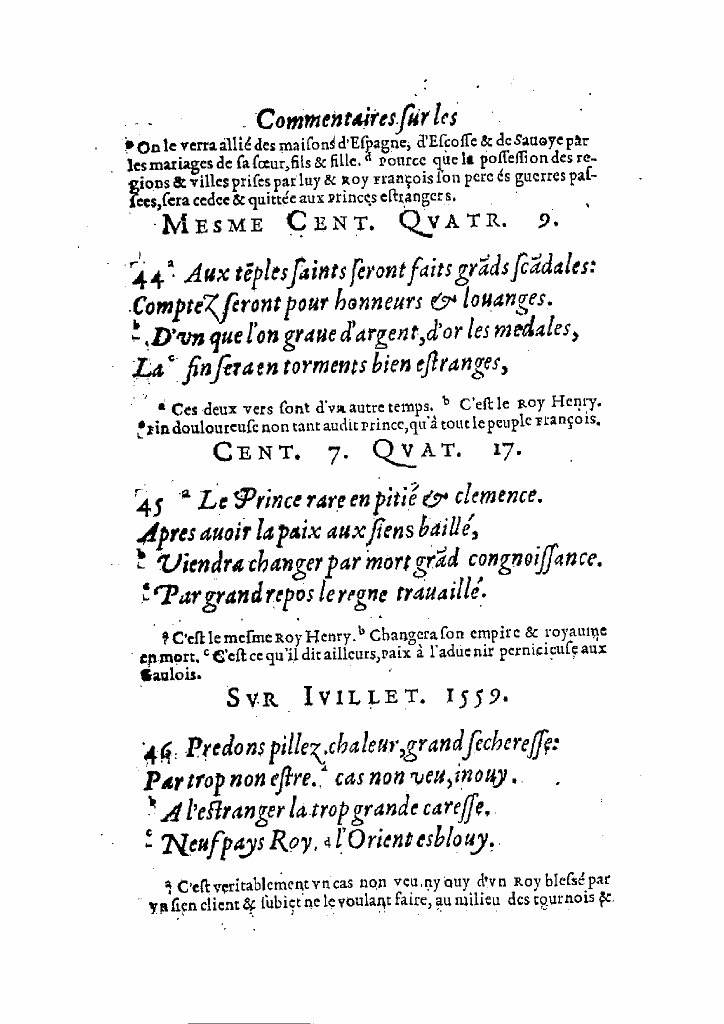 Commentaires ſur les
ᵇ On le verra allié des maiſons d'Eſpagne, d'Eſcoſſe & de Sauoye par
les mariages de ſa ſœur, fils & fille. ᵈ Pource que la poſſeſſion des re-
gions & villes priſes par luy & Roy François ſon pere és guerres paſ-
ſees, ſera cedee & quittée aux Princes eſtrangers.
MESME CENT. QVATR. 9.
44 ᵃ Aux tẽples ſaints ſeront faits grãds ſcãdales:
Comptez ſeront pour honneurs & louanges.
ᵇ D'vn que l'on graue d'argent, d'or les medales,
La ᶜ fin ſera en torments bien eſtranges,
ᵃ Ces deux vers ſont d'vn autre temps. ᵇ C'eſt le Roy Henry.
ᶜ Fin douloureuſe non tant audit Prince, qu'à tout le peuple François.
CENT. 7. QVAT. 17.
45 ᵃ Le Prince rare en pitié & clemence.
Apres auoir la paix aux ſiens baillé,
ᵇ Viendra changer par mort grãd congnoiſſance.
ᶜ Par grand repos le regne trauaillé.
ᵃ C'eſt le meſme Roy Henry. ᵇ Changera ſon empire & royaume
en mort. ᶜ C'eſt ce qu'il dit ailleurs, Paix à l'aduenir pernicieuſe aux
Gaulois.
SVR IVILLET. 1559.
46 Predons pillez, chaleur, grand ſechereſſe:
Par trop non eſtre. ᵃ cas non veu, inouy.
ᵇ A l'eſtranger la trop grande careſſe.
ᶜ Neuf pays Roy. ᵈ l'Orient esblouy.
ᵃ C'eſt veritablement vn cas non veu ny ouy d'vn Roy bleſſé par
vn ſien client & ſubiet ne le voulant faire, au milieu des tournois &